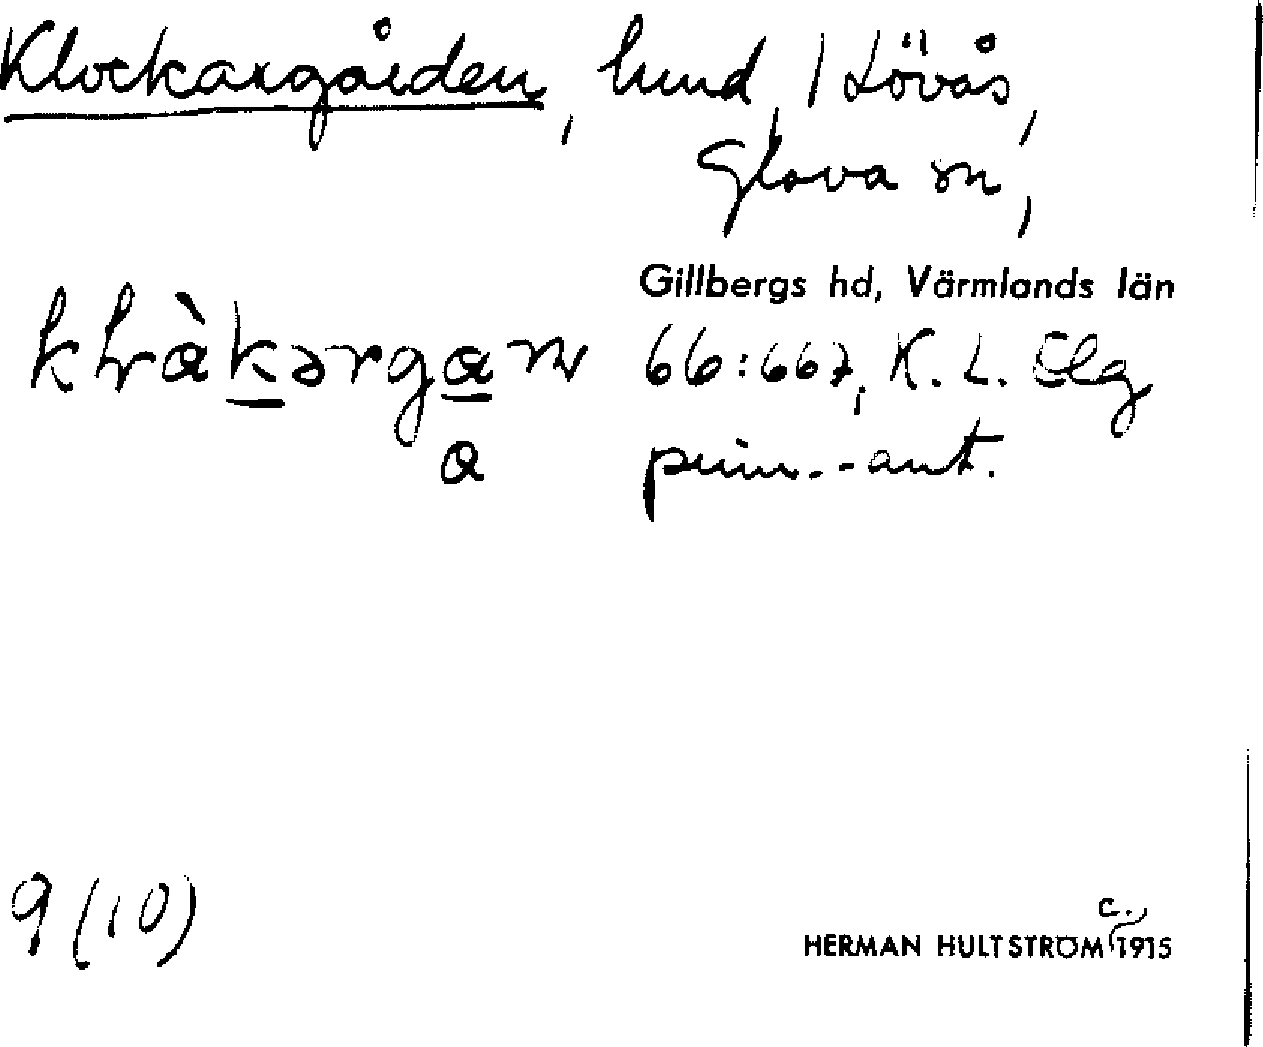 Klockargården, hmd / Lövås,
Glava sn,
Gillbergs hd, Värmlands län
66:667, K. L. Elg
a prim.-ant.
9 (10)
c.
HERMAN HULTSTRÖM 1915